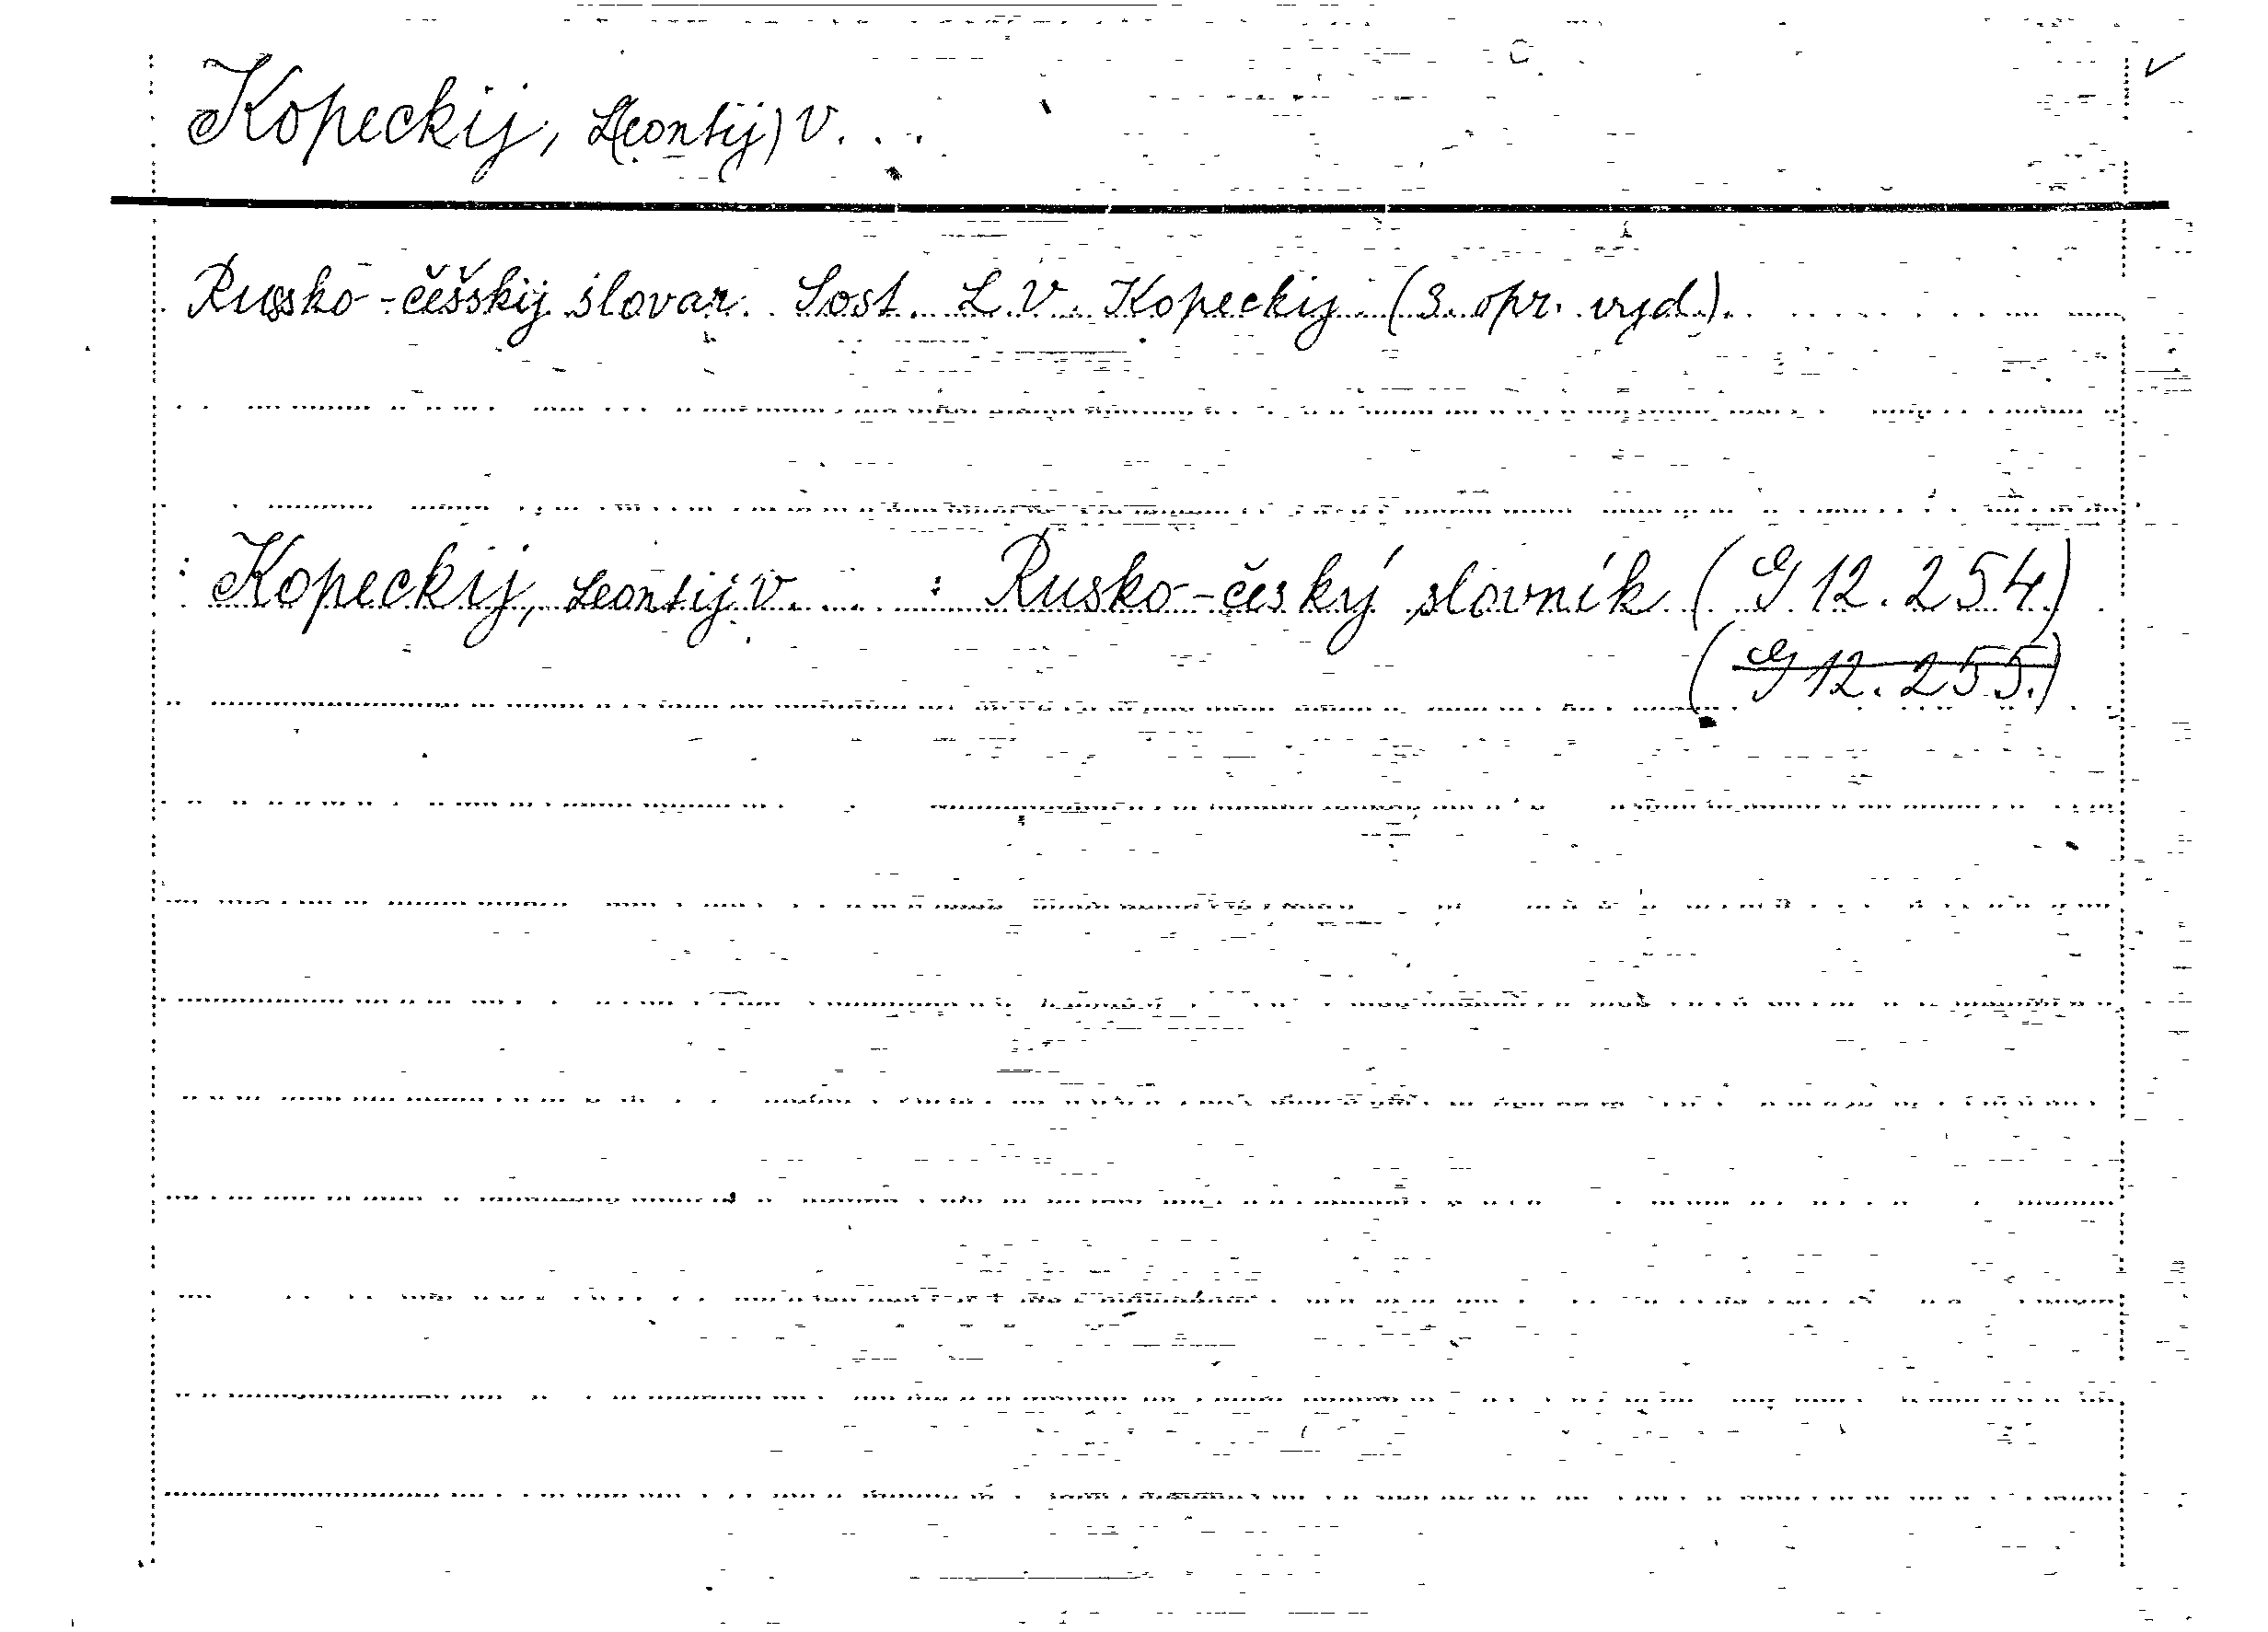 Kopeckij, L(eontij) V.
Russko-češskij slovar. Sost. L.V. Kopeckij (3. opr. vyd.).
Kopeckij, Leontij V. : Rusko-český slovník (G 12.254)
(G 12.255.)